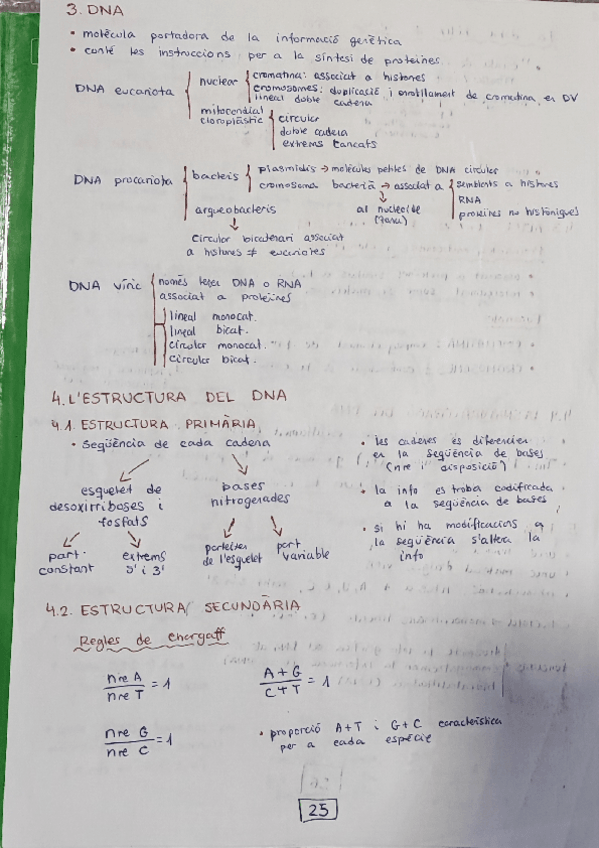 3. DNA
• molècula portadora de la informació genètica
• conté les instruccions per a la síntesi de proteïnes
DNA eucariota
nuclear
cromatina: associat a histones
cromosomes: duplicació i enrotllament de cromatina en DV
lineal doble cadena
mitocondrial
cloroplàstic
circular
doble cadena
extrems tancats
DNA procariota
bacteris
plasmidis → molècules petites de DNA circular
cromosoma bacterià → associat a
semblants a histones
RNA
proteïnes no històniques
al nucleoide
(zona)
arqueobacteris
circular bicatenari associat
a histones ≠ eucariotes
DNA víric
només tenen DNA o RNA
associat a proteïnes
lineal monocat.
lineal bicat.
circular monocat.
circular bicat.
4. L'ESTRUCTURA DEL DNA
4.1. ESTRUCTURA PRIMÀRIA
• Seqüència de cada cadena
esquelet de
desoxirriboses i
fosfats
part
constant
extrems
5' i 3'
bases
nitrogenades
penjen
de l'esquelet
part
variable
• les cadenes es diferencien
en la seqüència de bases
(nre i disposició)
• la info es troba codificada
a la seqüència de bases
• si hi ha modificacions a
la seqüència s'altera la
info
4.2. ESTRUCTURA SECUNDÀRIA
Regles de Chargaff
nre A / nre T = 1
A + G / C + T = 1
nre G / nre C = 1
• proporció A+T i G+C característica
per a cada espècie
25